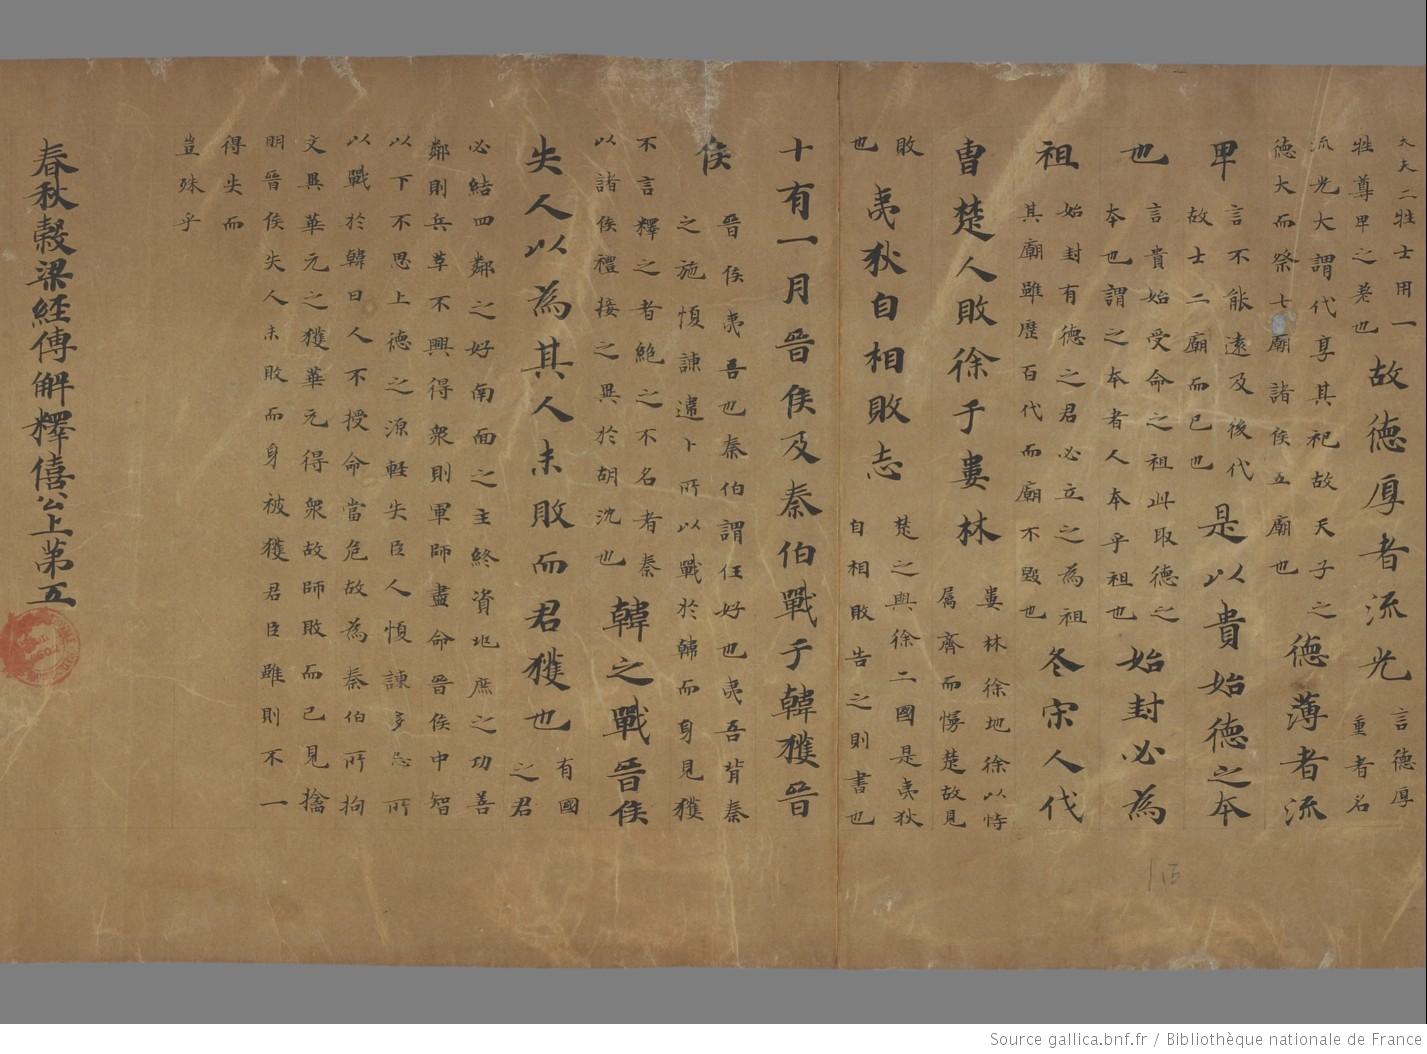 大夫二牲士用一
牲尊卑之差也
故德厚者流光
言德厚
重者名
流光大謂代享其祀故天子之
德大而祭七廟諸侯五廟也
德薄者流
卑
言不能遠及後代
故士二廟而已也
是以貴始德之本
也
言貴始受命之祖此取德之
本也謂之本者人本乎祖也
始封必為
祖
始封有德之君必立之為祖
其廟雖歷百代而廟不毀也
冬宋人伐
曹楚人敗徐于婁林
婁林徐地徐以恃
屬齊而慢楚故見
敗
也
夷狄自相敗志
楚之與徐二國是夷狄
自相敗告之則書也
十有一月晉侯及秦伯戰于韓獲晉
侯
晉侯夷吾也秦伯謂任好也夷吾背秦
之施愎諫違卜所以戰於韓而身見獲
不言釋之者絕之不名者秦
以諸侯禮接之異於胡沈也
韓之戰晉侯
失人以為其人未敗而君獲也
有國
之君
必結四鄰之好南面之主終資兆庶之功善
鄰則兵革不興得衆則軍師盡命晉侯中智
以下不思上德之源輕失臣人愎諫多忌所
以戰於韓曰人不授命當危故為秦伯所拘
文異華元之獲華元得衆故師敗而己見擒
明晉侯失人未敗而身被獲君臣雖則不一
得失而
豈殊乎
春秋穀梁經傳解釋僖公上第五
Source gallica.bnf.fr / Bibliothèque nationale de France